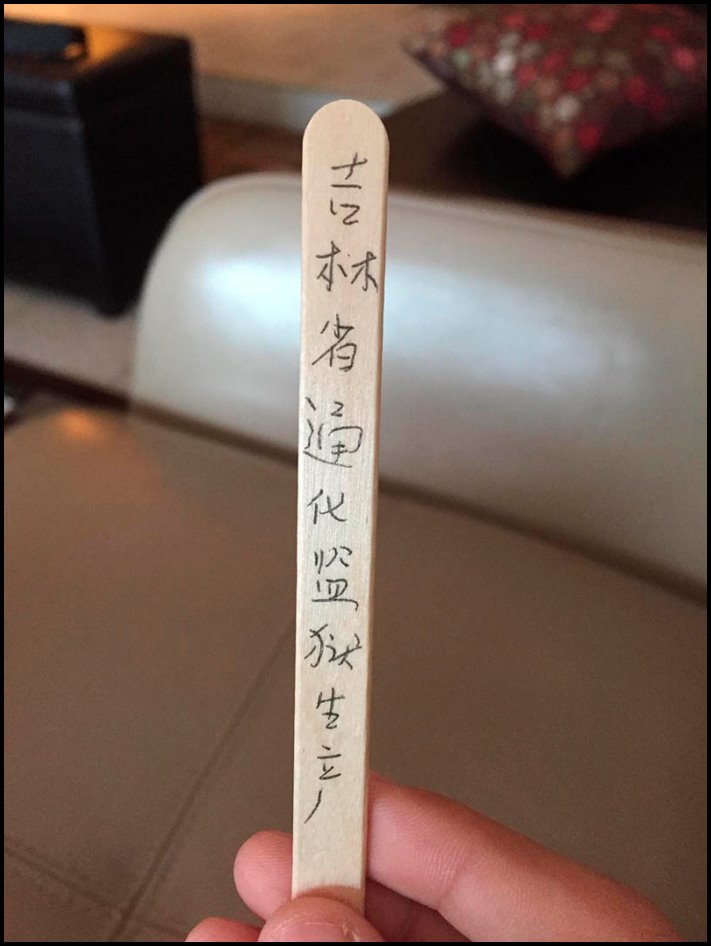 吉林省通化监狱生产